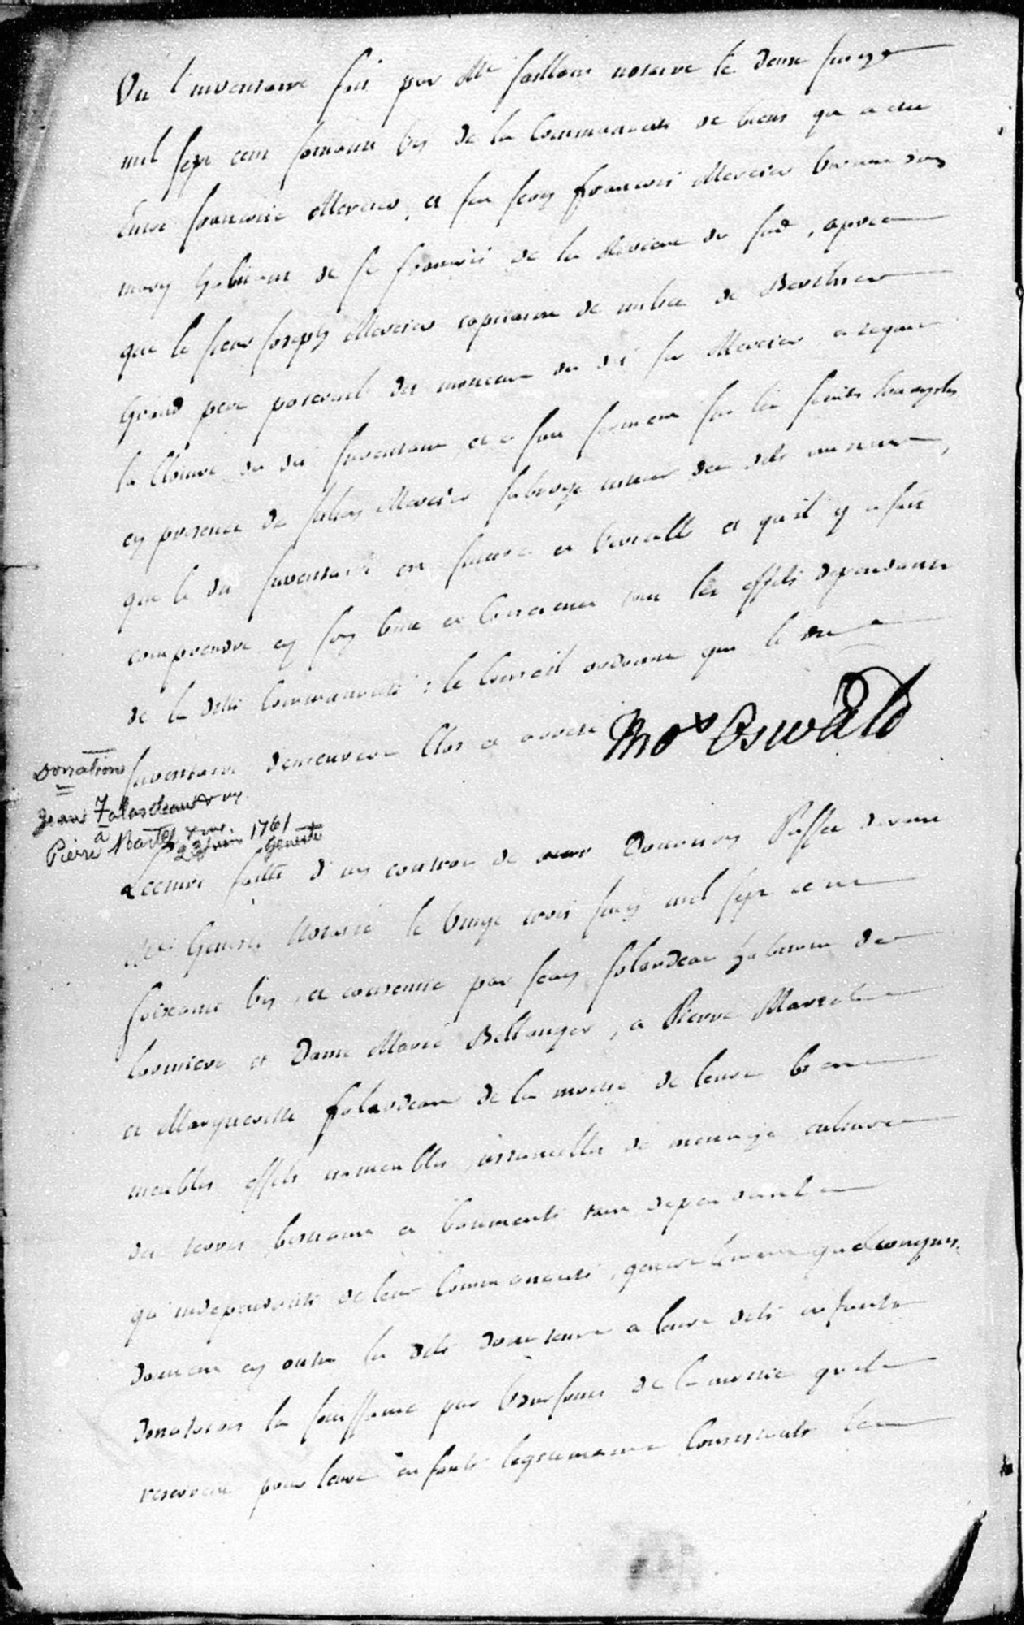 Vu l'inventaire fait par Me Saillant notaire le douse Juing
mil sept cent soixante Un de la Communauté de biens qui a eté
Entre françoise Mercier, et feu Jean françois Mercier
mary habitant de St françois de la Riviere du Sud, apres
que le sieur Joseph Mercier capitaine de milice de Berthier
Grand pere paternel des mineurs du dit feu Mercier a requis
la Cloture du dit Inventaire et a fait serment sur les Saints Evangiles
en presence de Julien Mercier Subrogé tuteur des dits mineurs,
que le dit Inventaire est sincere et veritable et qu'il y a fait
comprendre en son titre et Contenu tous les effets dependants
de la dite Communauté: le Conseil ordonne que le dit
Inventaire demeurera Clos et arreté
Thos Oswald
Donation
Jean Falardeau
à
Pierre Martel
23 Juin 1761
Genesté
Lecture faitte d'un contrat de Donation Passé devant
Me Genesté Notaire le Vingt trois Juing mil sept cent
soixante Un, et consentie par Jean falardeau habitant de
Lormiere et Dame Marie Bellanger, a Pierre Martel
et Marguerite falardeau de la moitié de leurs biens
meubles effets immeubles, ustancilles de menage cultures
des terres bestiaux et batiments tant dependants
qu'independants de leur Communauté, generalement quelconques
donnant en outre les dits donateurs a leurs dits enfants
donataires la Jouissance par Usufruit de la moitié qu'ils
reservent pour leurs enfants legitimaires Consistants les